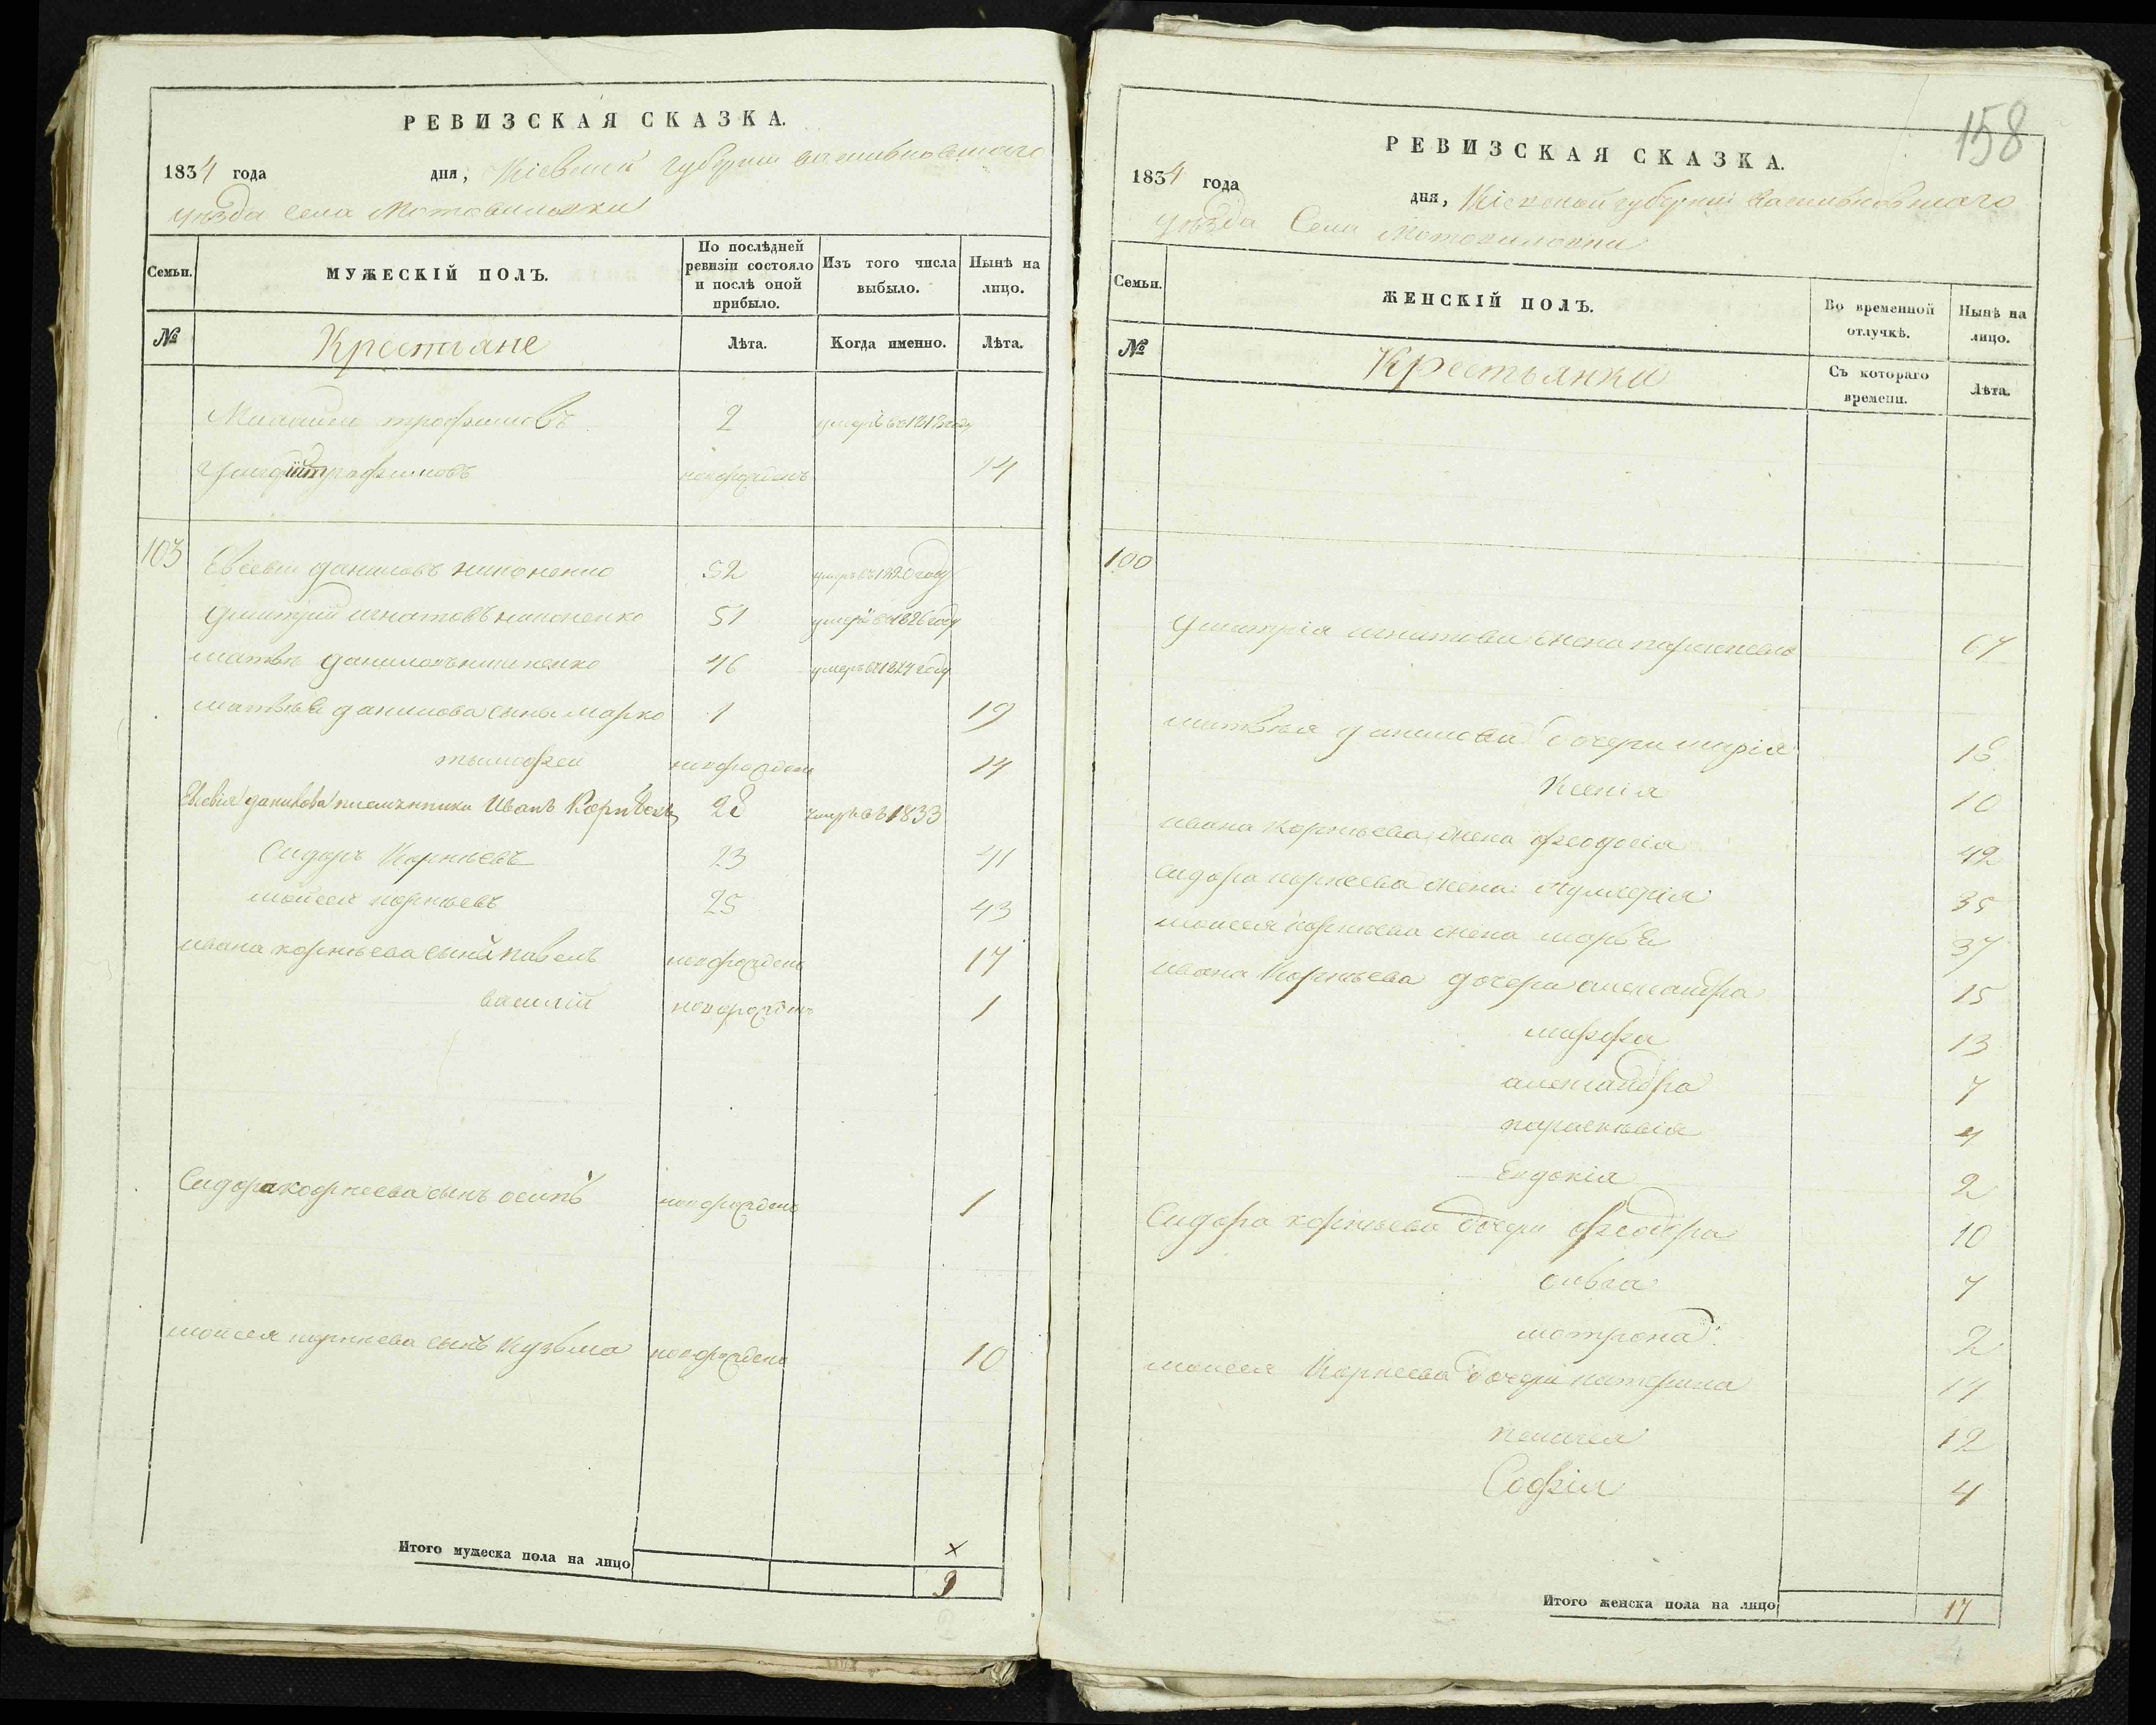 РЕВИЗСКАЯ СКАЗКА.
1834 года дня, Кіевской губерніи васильковскаго
уѣзда села Мотовиловки
Семьи. МУЖЕСКІЙ ПОЛЪ. По послѣдней ревизіи состояло и послѣ оной прибыло. Изъ того числа выбыло. Нынѣ на лицо.
№ Крестьяне Лѣта. Когда именно. Лѣта.
Михайло трофимовъ 2 умеръ въ
трофимовъ новорожденъ 14
103 Евсевій даниловъ никоненко 52 умеръ въ 1820 году
дмитрій игнатовъ никоненко 51 умеръ въ 1826 году
матвѣй даниловъ никоненко 46 умеръ въ 1824 году
матвѣя данилова сыны марко 1 19
тымофей новорожденъ 14
Евсевія данилова племянники Иванъ Корнѣевъ 28 умеръ въ 1833
Сидоръ Корнѣевъ 23 41
мойсей корнѣевъ 25 43
ивана корнѣева сыны павелъ новорожденъ 17
василій новорожденъ 1
Сидора корнеева сынъ осипъ новорожденъ 1
мойсея корнеева сынъ кузьма новорожденъ 10
Итого мужеска пола на лицо × 9
158
РЕВИЗСКАЯ СКАЗКА.
1834 года дня, Кіевской губерніи васильковскаго
уѣзда Села Мотовиловки
Семьи. ЖЕНСКІЙ ПОЛЪ. Во временной отлучкѣ. Нынѣ на лицо.
№ Крестьянки Съ котораго времени. Лѣта.
100
дмитрія игнатова жена 67
матвѣя данилова дочери марія 18
Ксенія 10
ивана корнѣева жена феодосія 42
Сидора корнеева жена 35
мойсея корнѣева жена 37
ивана Корнѣева дочери александра 15
марфа 13
александра 7
параскевія 4
Евдокія 2
Сидора корнѣева дочери феодора 10
ольга 7
мотрона 2
мойсея Корнеева дочери катерина 14
12
Софія 4
Итого женска пола на лицо 17